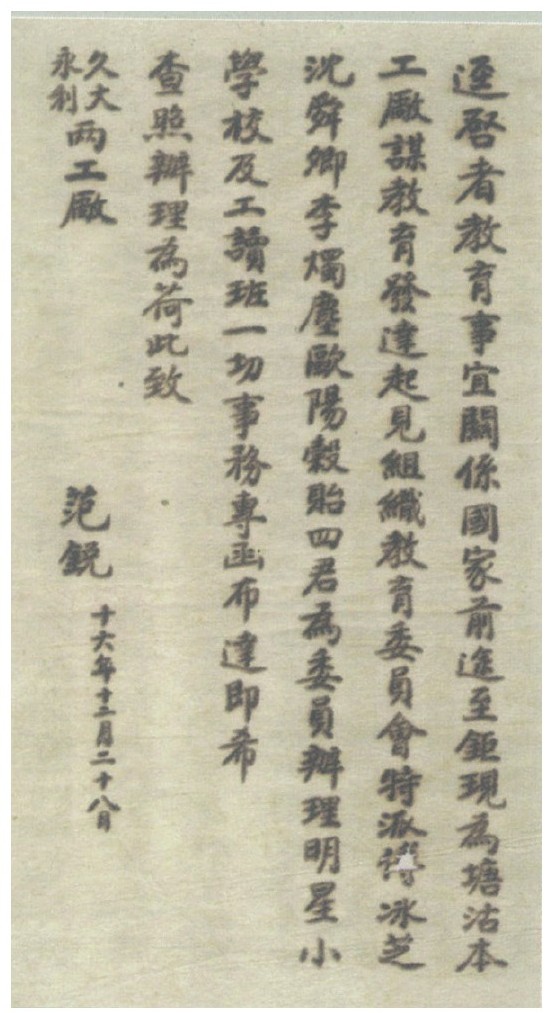 逕啓者教育事宜關係國家前途至鉅現為塘沽本
工廠謀教育發達起見組織教育委員會特派傅冰芝
沈舜卿李燭塵歐陽穀貽四君為委員辦理明星小
學校及工讀班一切事務專函布達即希
查照辦理為荷此致
久大
永利
两工廠
范銳
十六年十二月二十八日